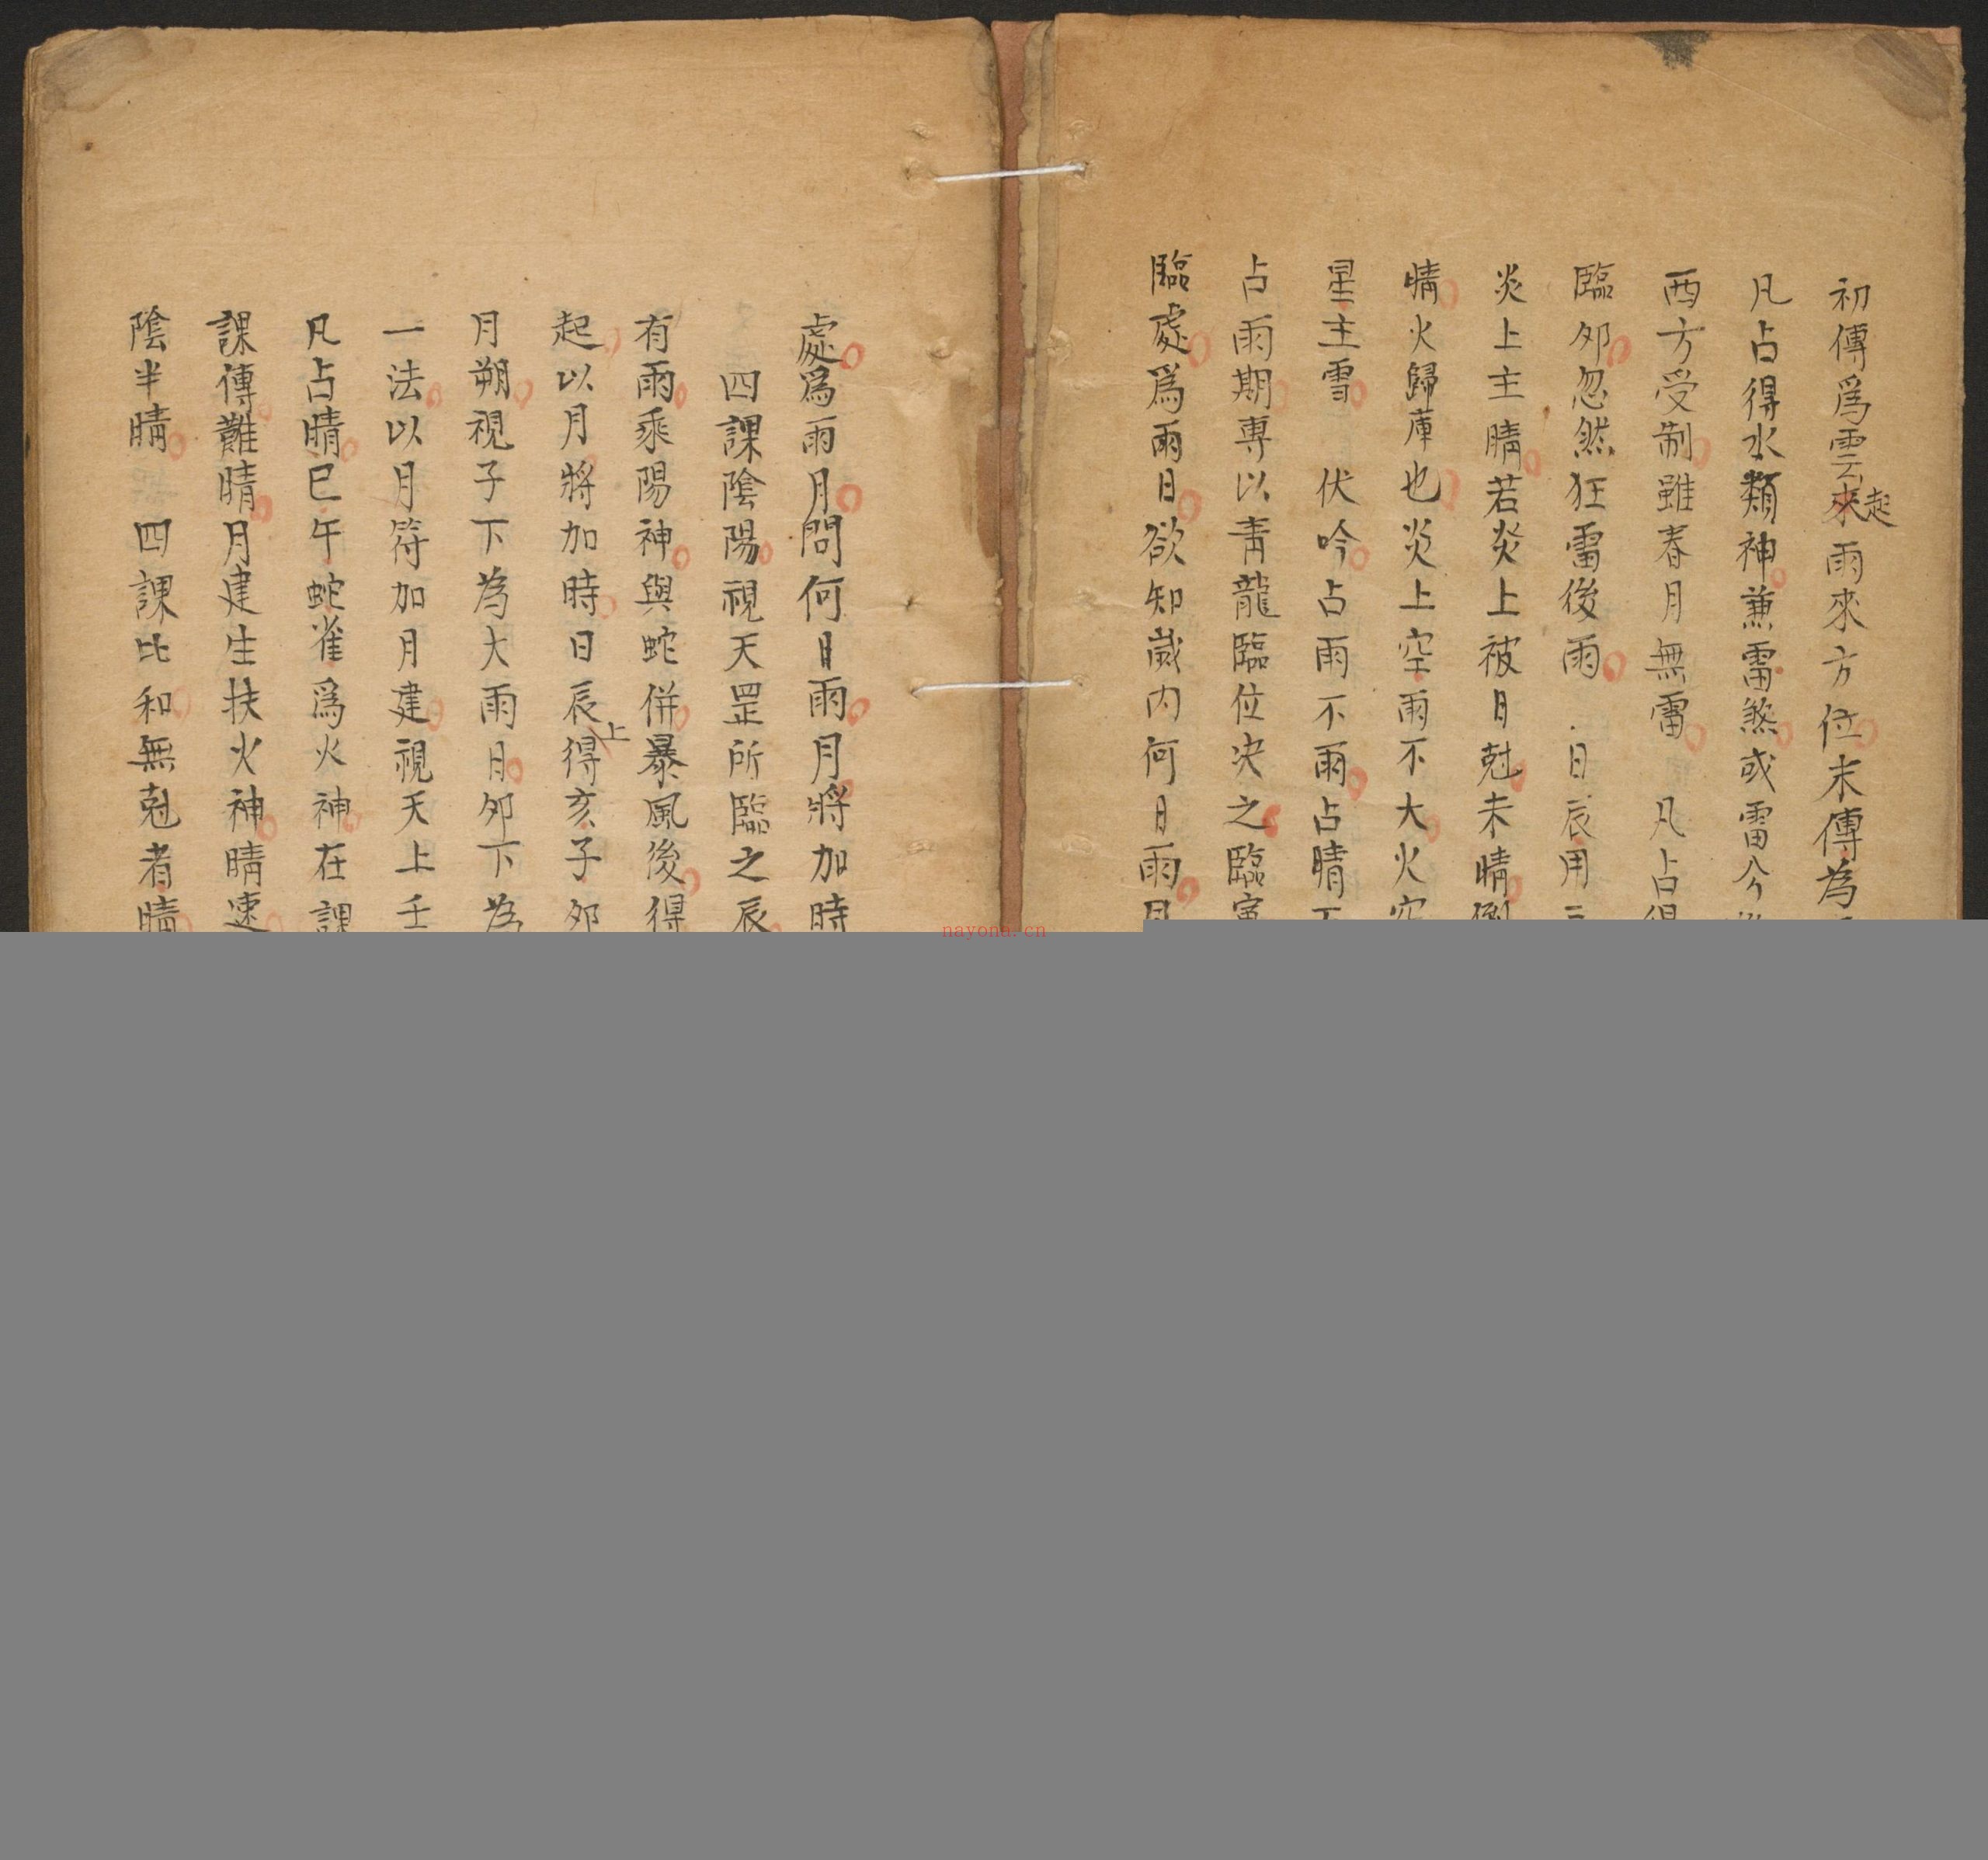 初傳爲雲來起雨來方位末傳為
凡占得水類神兼雷煞或雷公
西方受制雖春月無雷　凡占得
臨夘忽然狂雷後雨　日辰用三
炎上主晴若炎上被日尅未晴例
晴火歸庫也炎上空雨不大火空
星主雪　伏吟占雨不雨占晴不
占雨期專以青龍臨位决之臨寅
臨處爲雨日欲知歲内何月雨月
處爲雨月問何日雨月將加時
四課陰陽視天罡所臨之辰
有雨乘陽神與蛇併暴風後得
起以月將加時日辰上得亥子夘
月朔視子下為大雨日夘下為
一法以月符加月建視天上壬
凡占晴巳午蛇雀爲火神在課
課傳難晴月建生扶火神晴速
陰半晴　四課比和無尅者晴
nayona.cn